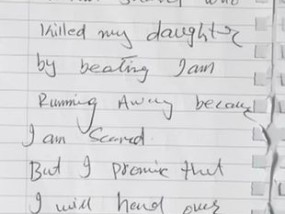 who
killed my daughter
by beating I am
Running Away because
I am Scared.
But I promise that
I will hand over